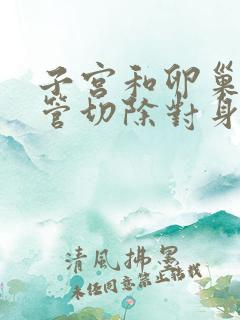 子宮和卵巢
管切除對身
清風拂墨
未經同意禁止轉載